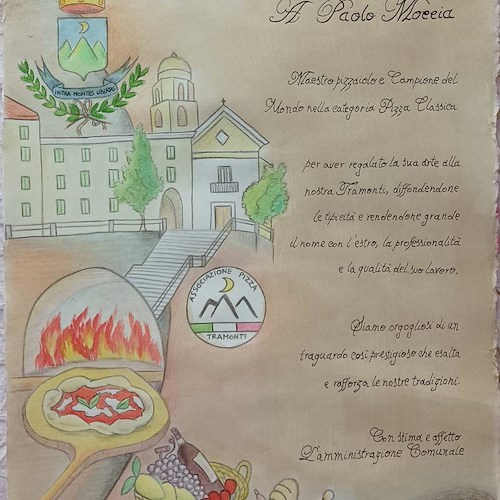 A Paolo Moccia
Maestro pizzaiolo e Campione del
Mondo nella categoria Pizza Classica
per aver regalato la sua arte alla
nostra Tramonti, diffondendone
le tipicità e rendendone grande
il nome con l'estro, la professionalità
e la qualità del suo lavoro.
Siamo orgogliosi di un
traguardo così prestigioso che esalta
e rafforza le nostre tradizioni.
Con stima e affetto
L'amministrazione Comunale
INTRA MONTES UBERTAS
ASSOCIAZIONE PIZZA
TRAMONTI